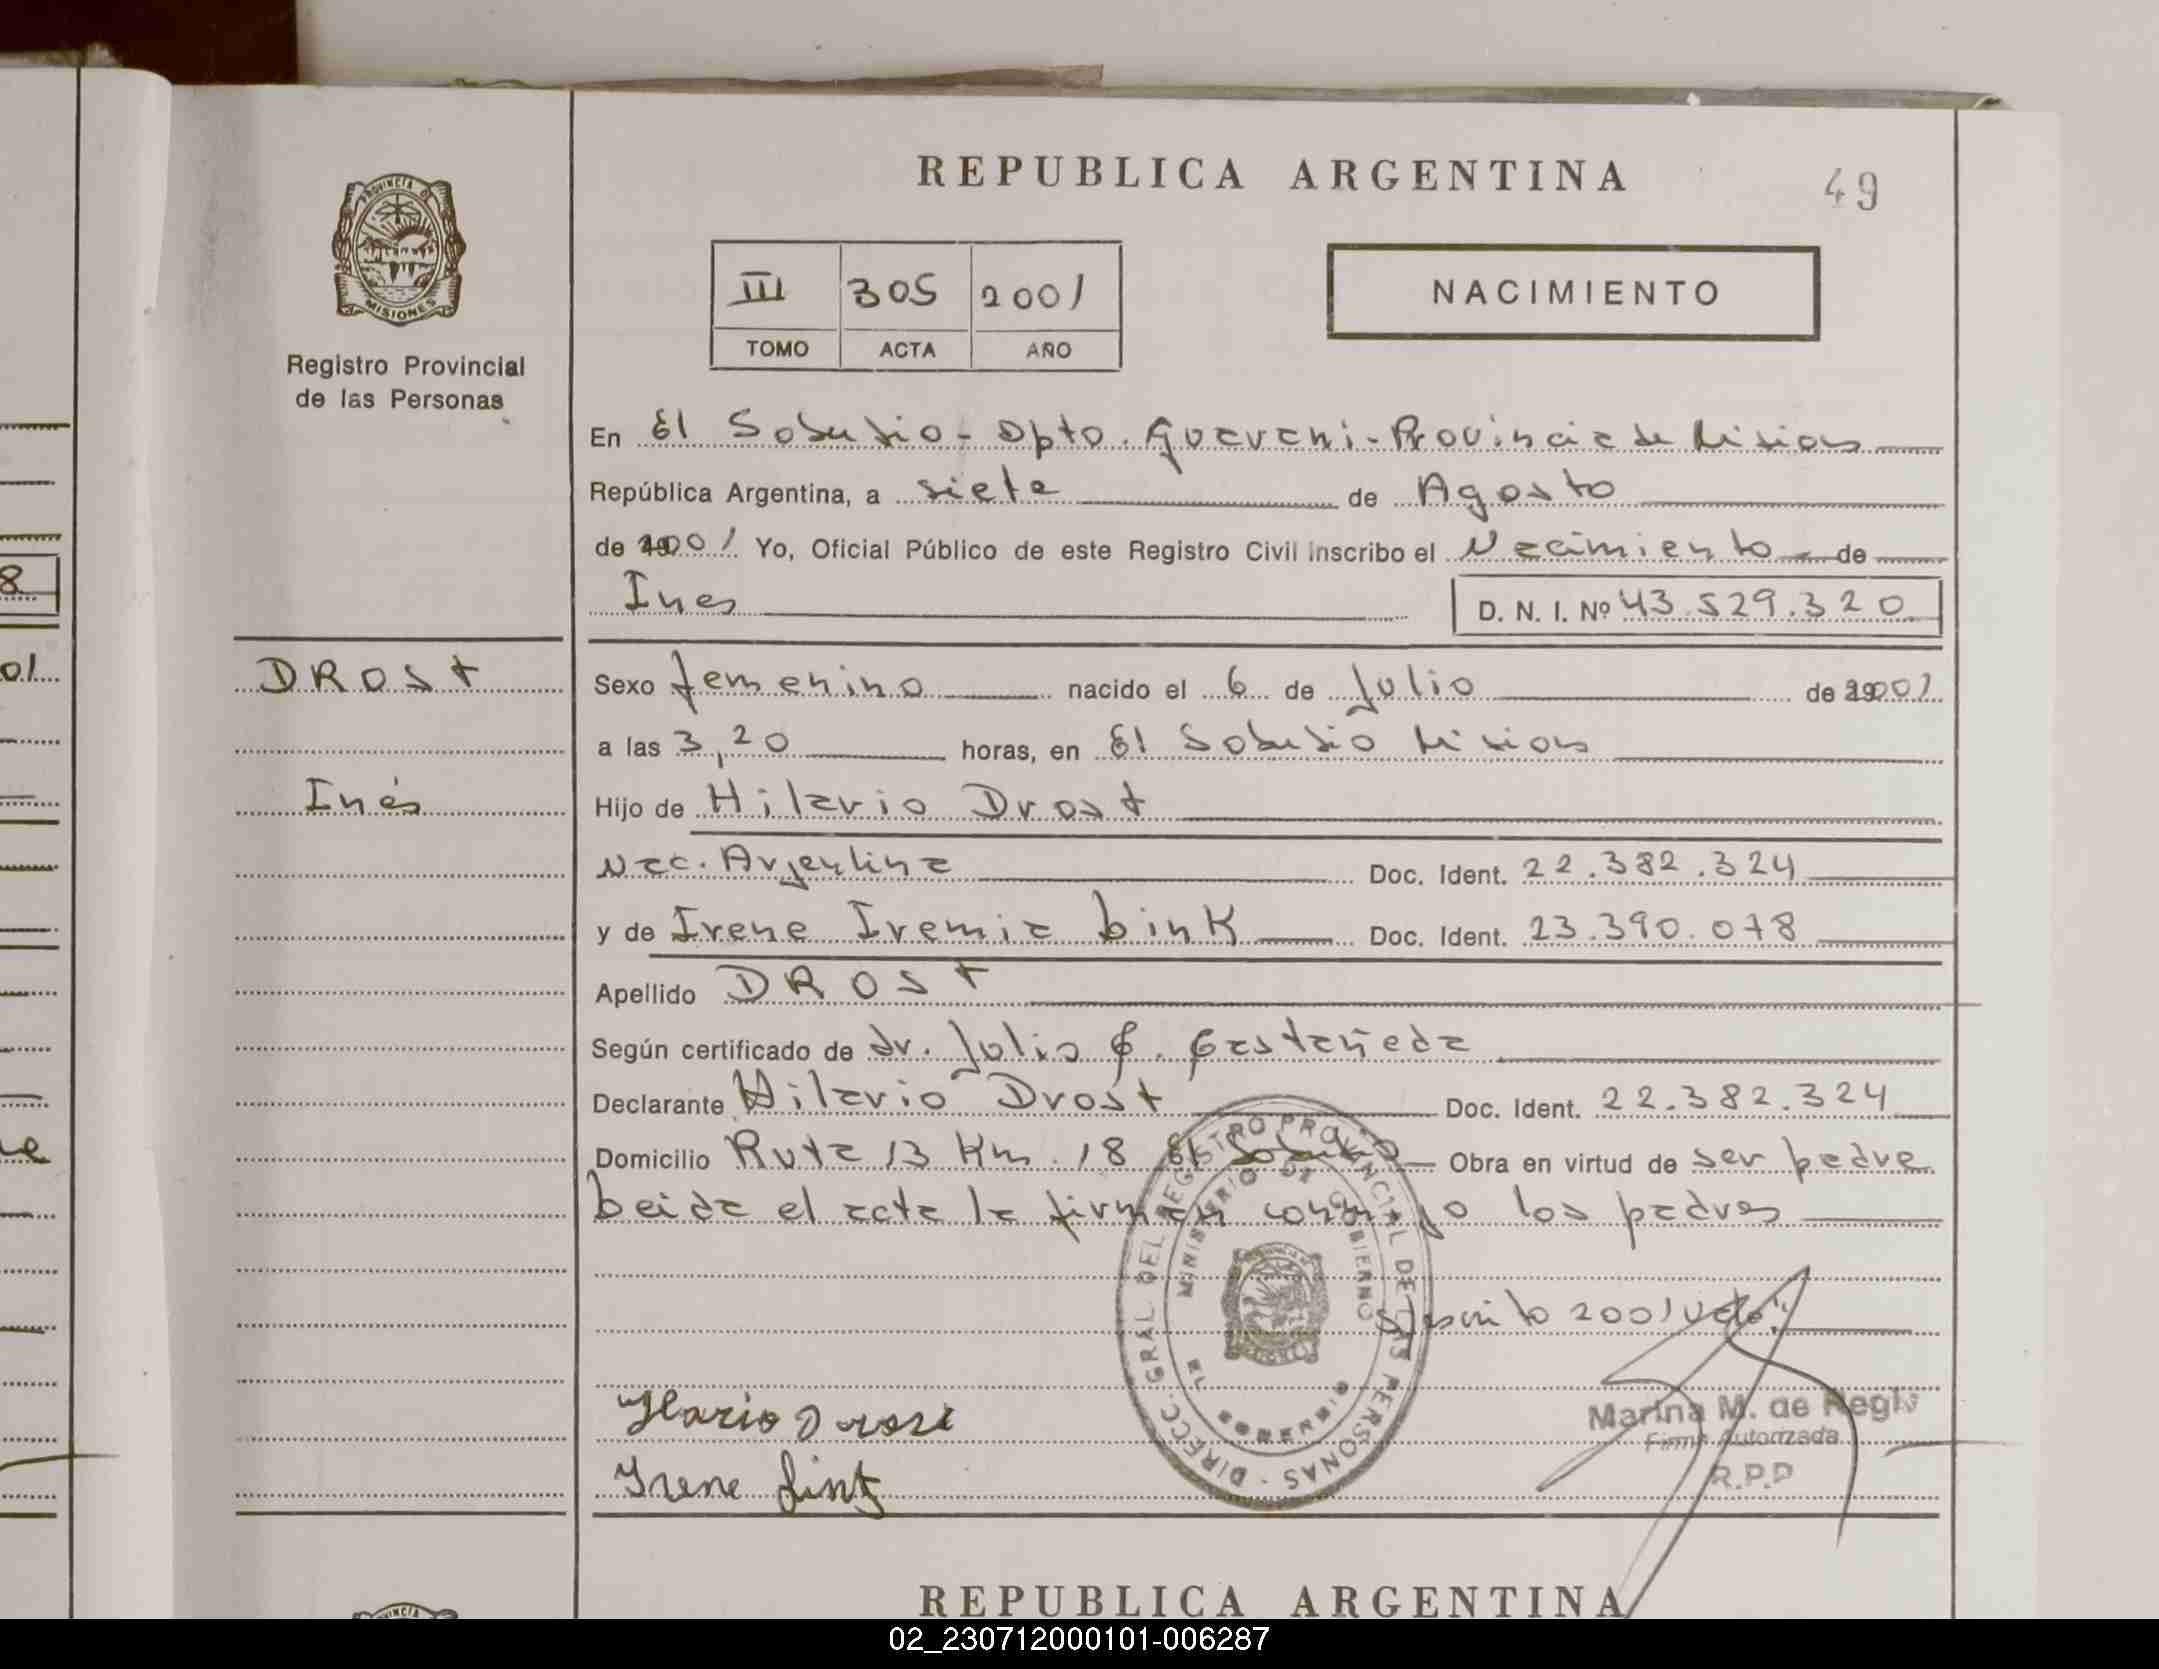 REPUBLICA ARGENTINA
49
PROVINCIA DE
MISIONES
Registro Provincial
de las Personas
III 305 2001
TOMO ACTA AÑO
NACIMIENTO
En El Soberbio - Dpto. Guarani - Provincia de Misiones
República Argentina, a siete de Agosto
de 2001 Yo, Oficial Público de este Registro Civil inscribo el Nacimiento de
Ines D. N. I. Nº 43.529.320
DROST
Sexo femenino nacido el 6 de Julio de 2001
a las 3,20 horas, en El Soberbio Misiones
Inés
Hijo de Hilario Drost
Nac. Argentina Doc. Ident. 22.382.324
y de Irene Iremia Link Doc. Ident. 23.390.078
Apellido DROST
Según certificado de dr. Julio G. Castañeda
Declarante Hilario Drost Doc. Ident. 22.382.324
Domicilio Ruta 13 Km 18 El Soberbio Obra en virtud de ser padre
Leida el acta la firman conmigo los padres
2001
DIRECC. GRAL DEL REGISTRO PROVINCIAL DE LAS PERSONAS
MINISTERIO DE GOBIERNO
EL SOBERBIO
Ilario Drost
Irene Link
Marina M. de Regis
Firma Autorizada
R.P.P
REPUBLICA ARGENTINA
02_230712000101-006287